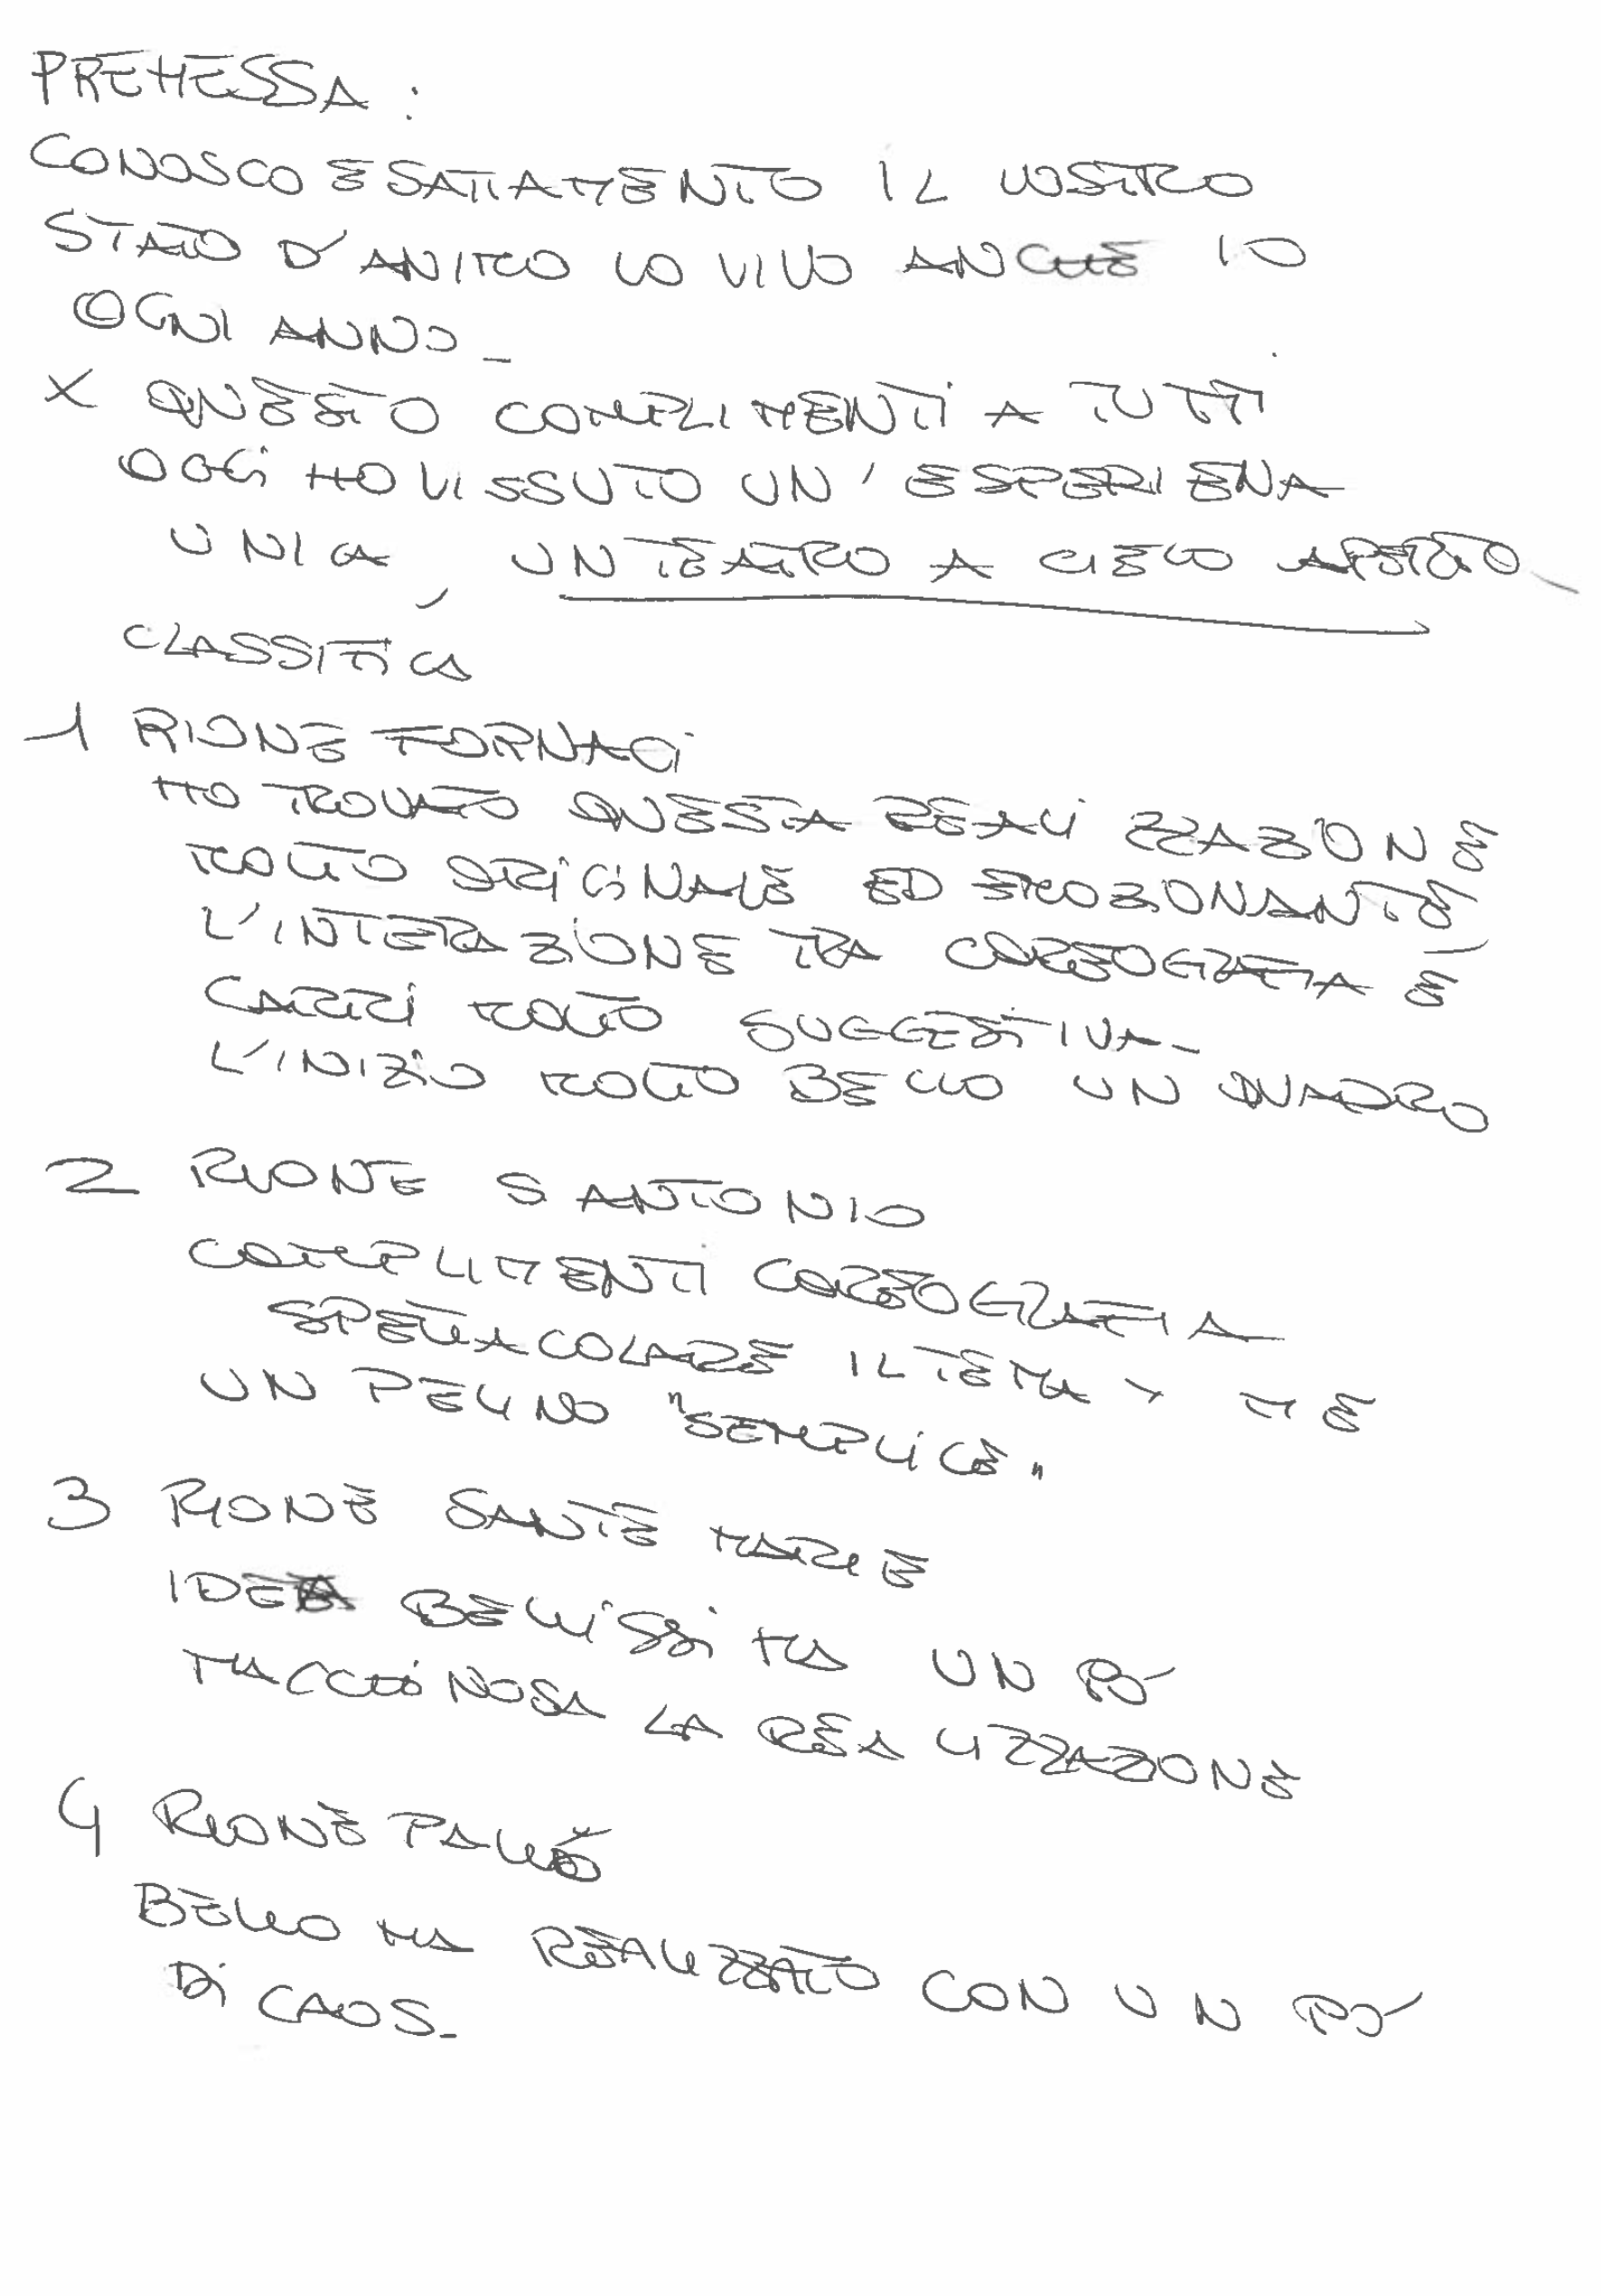 PREMESSA:
CONOSCO ESATTAMENTO IL VOSTRO
STATO D'ANIMO LO VIVO ANCHE IO
OGNI ANNO_
X QUESTO COMPLIMENTI A TUTTI
OGGI HO VISSUTO UN'ESPERIENA
UNICA, UN TEATRO A CIELO APERTO_
CLASSIFICA
1 RIONE FORNACI
HO TROVATO QUESTA REALIZZAZIONE
MOLTO ORIGINALE ED EMOZIONANTE,
L'INTERAZIONE TRA COREOGRAFIA E
CARRI MOLTO SUGGESTIVA_
L'INIZIO MOLTO BELLO UN QUADRO
2 RIONE S ANTONIO
COMPLIMENTI COREOGRAFIA
SPETTACOLARE IL TEMA X ME
UN PELINO "SEMPLICE"
3 RIONE SANTE MARIE
IDEA BELLISSIMA UN PO'
MACCHINOSA LA REALIZZAZIONE
4 RIONE PALLÒ
BELLO MA REALIZZATO CON UN PO'
DI CAOS_